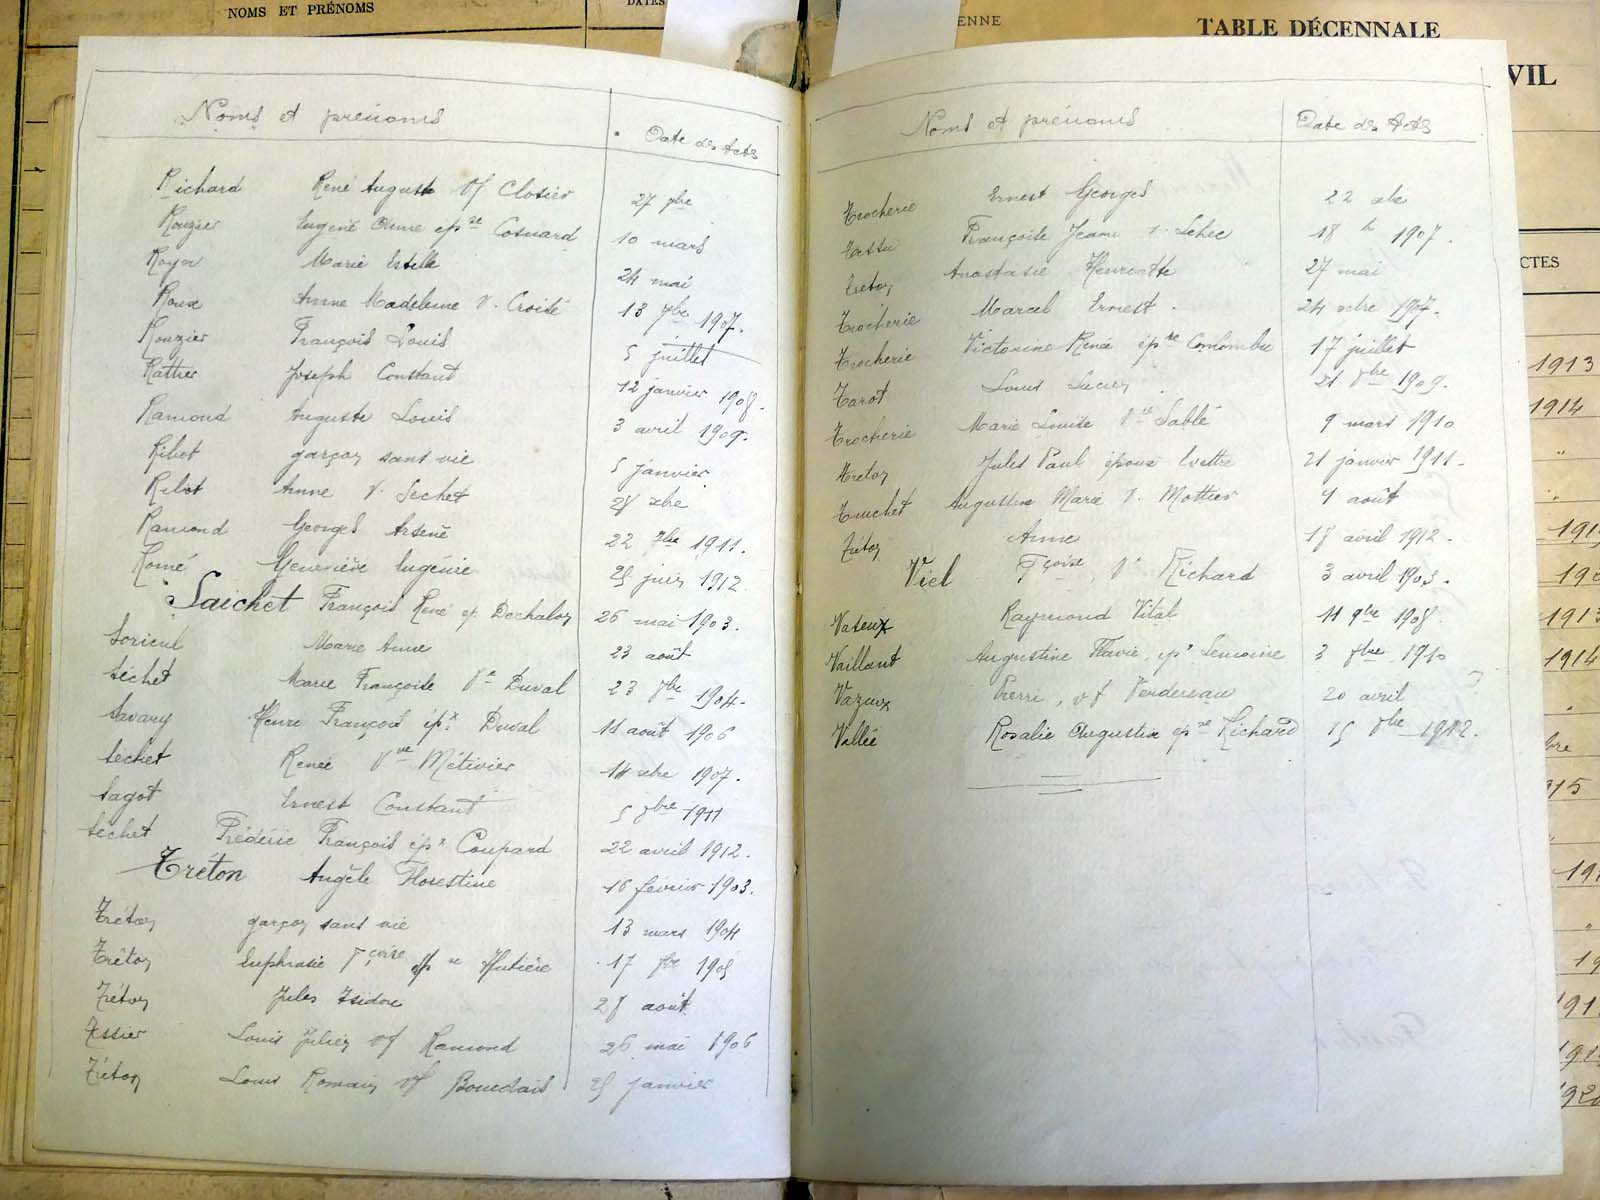 NOMS ET PRÉNOMS
DATES
ENNE
TABLE DÉCENNALE
VIL
CTES
Noms et prénoms
Date des Actes
Richard René Auguste Vf Closier 27 7bre
Rouzier Eugéne Anne épse Cosnard 10 mars
Royer Marie Estelle 24 mai
Roux Anne Madeleine V. Croité 13 7bre 1907.
Rouzier François Louis 5 juillet
Rattier Joseph Constant 12 janvier 1908.
Ramond Auguste Louis 3 avril 1909.
Ribot garçon sans vie 5 janvier
Ribot Anne V. Sechet 28 xbre
Ramond Georges Arsène 22 7bre 1911.
Romé Geneviève Eugénie 25 juin 1912.
Saichet François René ép. Dechalon 26 mai 1903.
Soricul Marie Anne 23 août
Séchet Marie Françoise Ve Duval 23 7bre 1904.
Savary Henri François épx Duval 11 août 1906
Séchet Renée Vve Métivier 14 xbre 1907.
Sagot Ernest Constant 5 9bre 1911
Séchet Frédéric François épx Coupard 22 avril 1912.
Tréton Angèle Florestine 16 février 1903.
Tréton garçon sans vie 13 mars 1904
Tréton Euphrasie Fçoise épse Hutière 17 7bre 1905
Tréton Jules Isidore 28 août
Tessier Louis Julien Vf Ramond 26 mai 1906
Tréton Louis Romain Vf Bourdais 25 janvier
Noms et prénoms
Date des Actes
Trocherie Ernest Georges 22 xbre
Testu Françoise Jeanne V. Lehec 18 " 1907.
Tréton Anastasie Henriette 27 mai
Trocherie Marcel Ernest. 24 octre 1907.
Trocherie Victorine Renée épse Colombu 17 juillet
Tarot Louis Lucien. 21 8bre 1909.
Trocherie Marie Louise Vve Sablé 9 mars 1910
Treton Jules Paul époux Evettre 21 janvier 1911.
Truchet Augustine Marie V. Mottier 4 août
Tréton Anne 18 avril 1912.
Viel Fçoise, Ve Richard 3 avril 1903.
Vateux Raymond Vital 11 9bre 1908.
Vaillant Augustine Flavie, épse Lemoine 3 8bre 1910
Vazeux Pierre, Vf Verdereau 20 avril
Vallée Rosalie Augustine épse Richard 15 8bre 1912.
1913
1914
"
"
1913
1914
"
bre
"
"
19